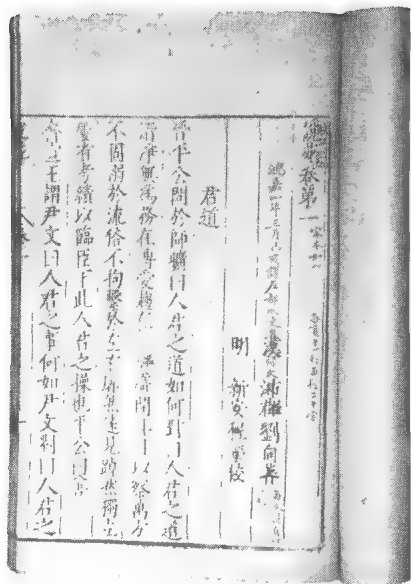 說苑卷第一 宋本
鴻嘉四年三月己亥護左都水使者
漢 沛郡劉向著
明 新安程榮校
君道
晉平公問於師曠曰人君之道如何對曰人君之道
清淨無為務在博愛趨在 廣開耳目以察萬方
不固溺於流俗不拘繫於左右廓然遠見踔然獨立
屢省考績以臨臣下此人君之操也平公曰善
齊宣王謂尹文曰人君之事何如尹文對曰人君之